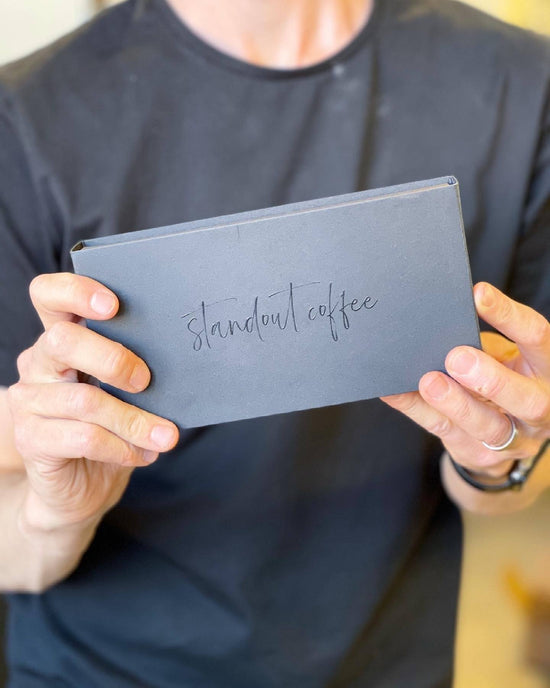 standout coffee